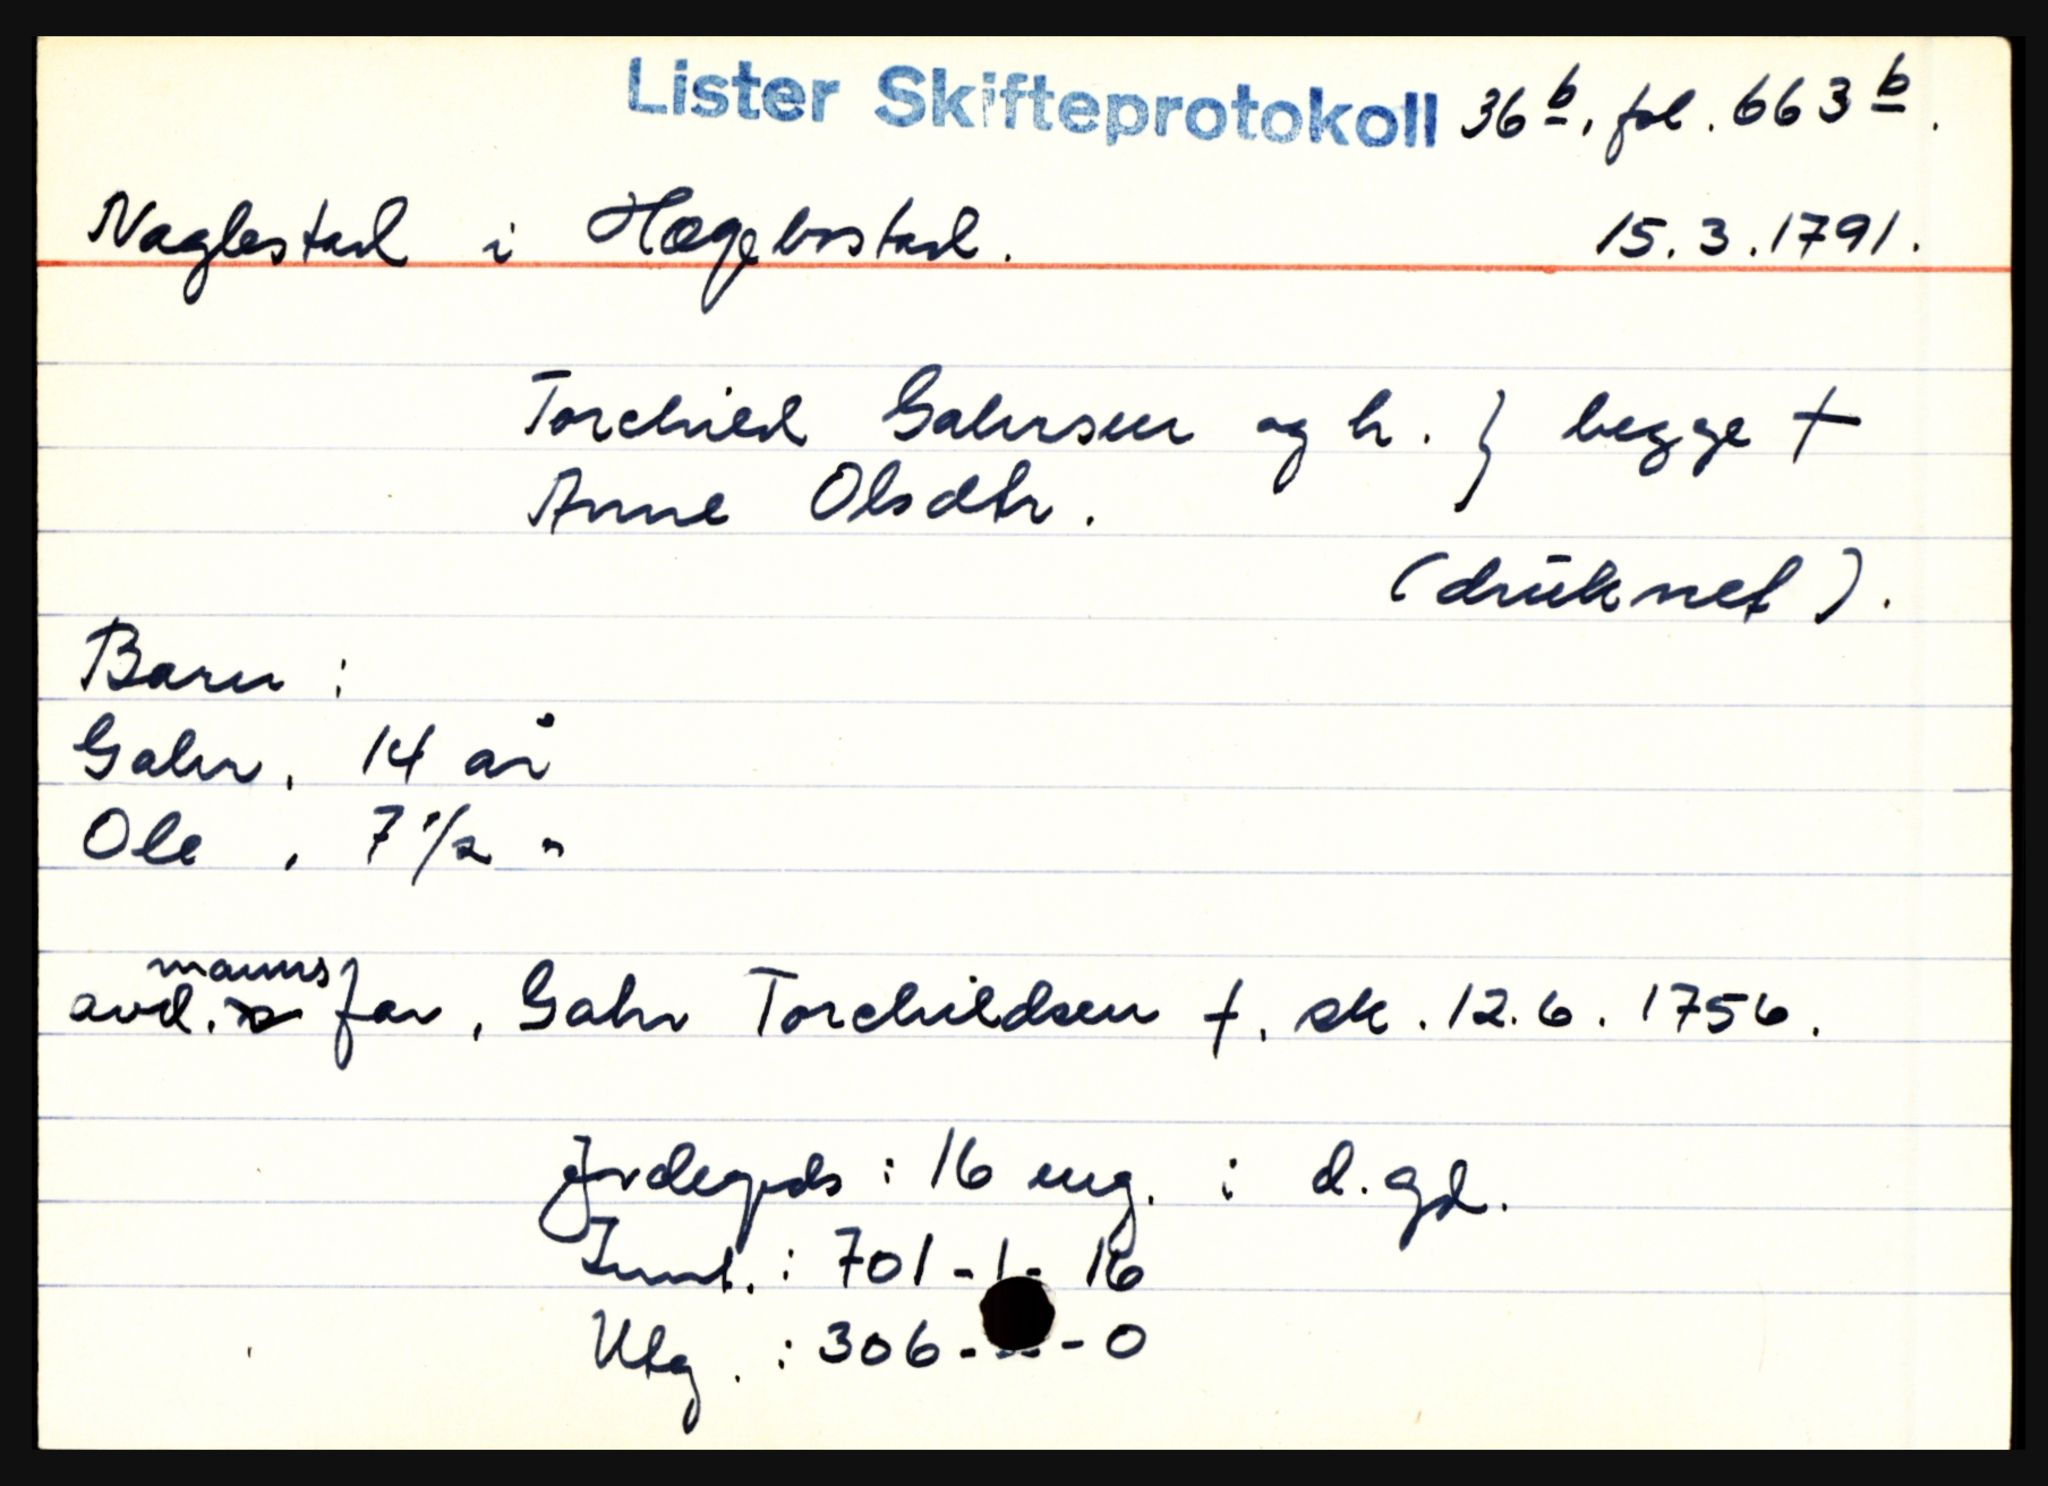 Lister Skifteprotokoll 36b, fol. 663b.
Naglestad i Hægebostad. 15.3.1791.
Torchild Gahrsen og h. } begge †
Anne Olsdtr.
(drūknet).
Barn:
Gahr, 14 år
Ole, 7 1/2 "
manns
avd. far, Gahr Torchildsen †, sk. 12.6.1756.
Jordegods: 16 eng. i d. gd.
Innt.: 701-1-16
Utg.: 306- -0